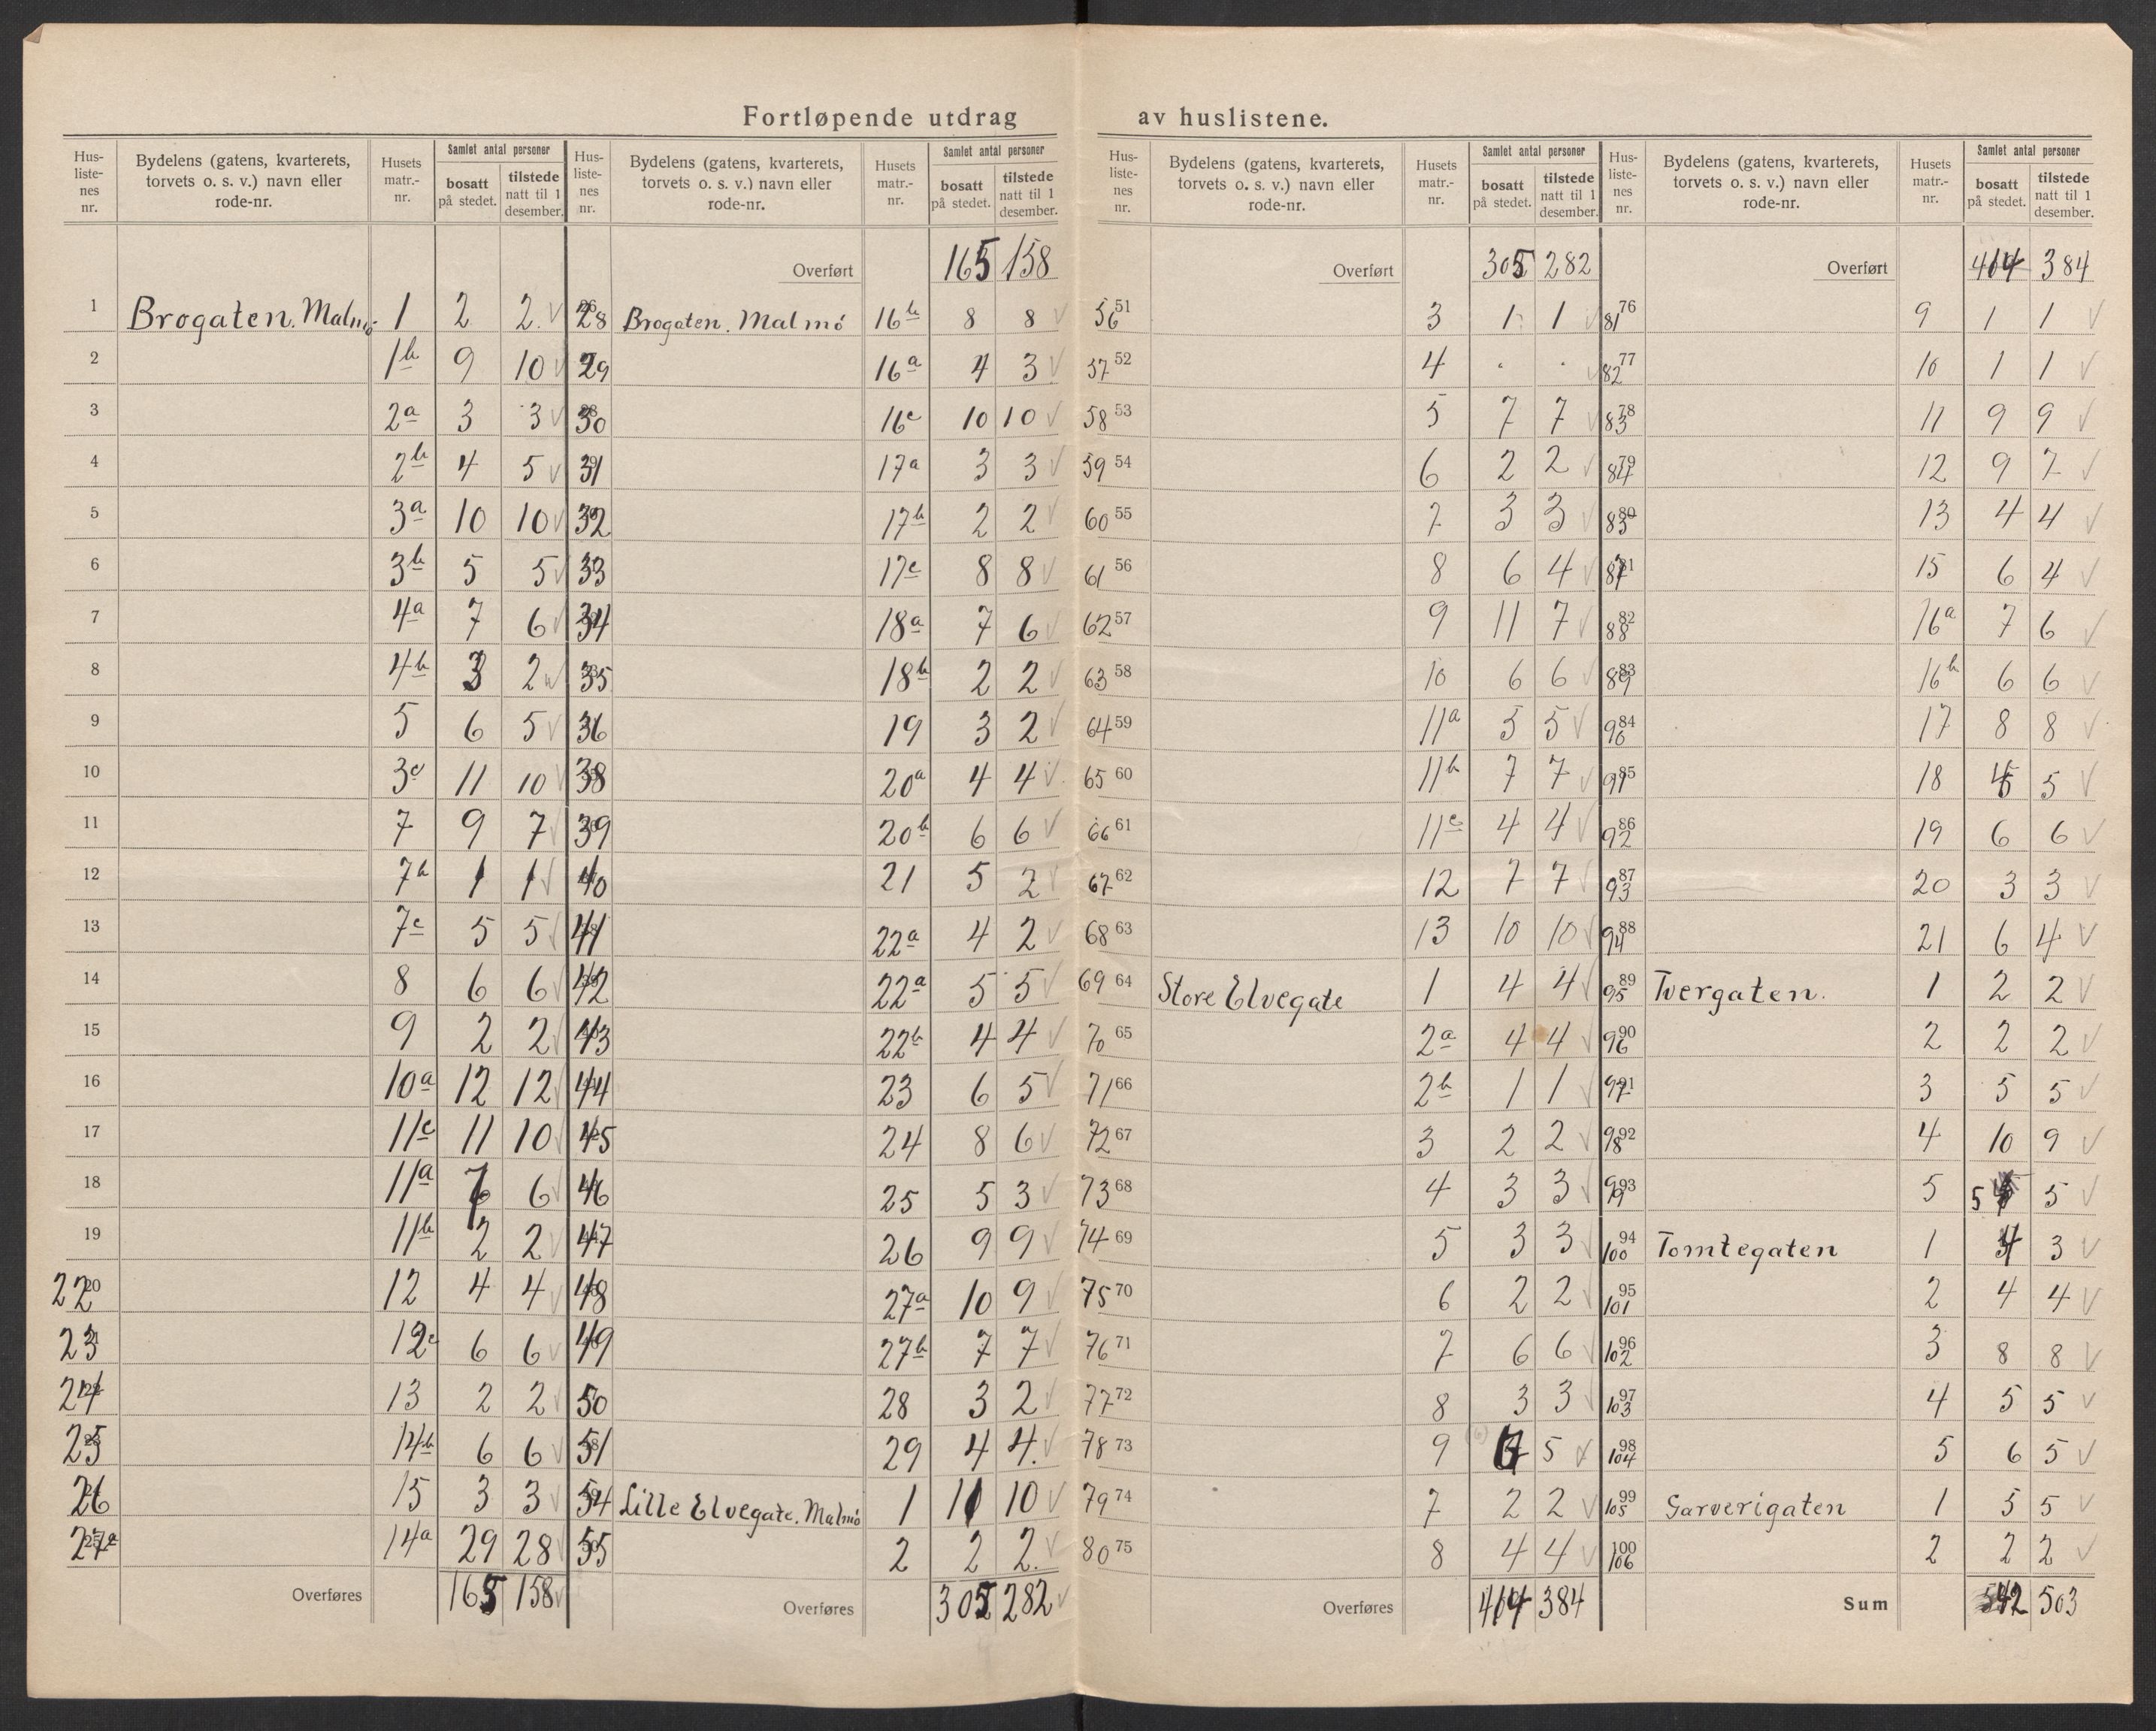 Fortløpende utdrag av huslistene.
Hus-liste-nes nr. | Bydelens (gatens, kvarterets, torvets o. s. v.) navn eller rode-nr. | Husets matr.-nr. | Samlet antal personer bosatt på stedet. | tilstede natt til 1 desember.
1 Brogaten. Malmö 1 2 2 √
2 1b 9 10 √
3 2a 3 3 √
4 2b 4 5 √
5 3a 10 10 √
6 3b 5 5 √
7 4a 7 6 √
8 4b 3 2 √
9 5 6 5 √
10 3c 11 10 √
11 7 9 7 √
12 7b 1 1 √
13 7c 5 5 √
14 8 6 6 √
15 9 2 2 √
16 10a 12 12 √
17 11c 11 10 √
18 11a 6 √
19 11b 2 2 √
22 12 4 4 √
23 12c 6 6 √
24 13 2 2 √
25 14b 6 6 √
26 15 3 3 √
27a 14a 29 28 √
Overføres 165 158 √
Hus-liste-nes nr. | Bydelens (gatens, kvarterets, torvets o. s. v.) navn eller rode-nr. | Husets matr.-nr. | Samlet antal personer bosatt på stedet. | tilstede natt til 1 desember.
Overført 165 158
28 Brogaten. Malmö 16b 8 8 √
29 16a 4 3 √
30 16c 10 10 √
31 17a 3 3 √
32 17b 2 2 √
33 17c 8 8 √
34 18a 7 6 √
35 18b 2 2 √
36 19 3 2 √
38 20a 4 4 √
39 20b 6 6 √
40 21 5 2 √
41 22a 4 2 √
42 22a 5 5 √
43 22b 4 4 √
44 23 6 5 √
45 24 8 6 √
46 25 5 3 √
47 26 9 9 √
48 27a 10 9 √
49 27b 7 7 √
50 28 3 2 √
51 29 4 4 √
54 Lille Elvegate. Malmö 1 11 10 √
55 2 2 2 √
Overføres 305 282 √
Hus-liste-nes nr. | Bydelens (gatens, kvarterets, torvets o. s. v.) navn eller rode-nr. | Husets matr.-nr. | Samlet antal personer bosatt på stedet. | tilstede natt til 1 desember.
Overført 305 282
56 51 3 1 1 √
57 52 4 . . √
58 53 5 7 7 √
59 54 6 2 2 √
60 55 7 3 3 √
61 56 8 6 4 √
62 57 9 11 7 √
63 58 10 6 6 √
64 59 11a 5 5 √
65 60 11b 7 7 √
66 61 11c 4 4 √
67 62 12 7 7 √
68 63 13 10 10 √
69 64 Store Elvegate 1 4 4 √
70 65 2a 4 4 √
71 66 2b 1 1 √
72 67 3 2 2 √
73 68 4 3 3 √
74 69 5 3 3 √
75 70 6 2 2 √
76 71 7 6 6 √
77 72 8 3 3 √
78 73 9 5 √
79 74 7 2 2 √
80 75 8 4 4 √
Overføres 384
Hus-liste-nes nr. | Bydelens (gatens, kvarterets, torvets o. s. v.) navn eller rode-nr. | Husets matr.-nr. | Samlet antal personer bosatt på stedet. | tilstede natt til 1 desember.
Overført 384
81 76 9 1 1 √
82 77 10 1 1 √
83 78 11 9 9 √
84 79 12 9 7 √
80 13 4 4 √
87 81 15 6 4 √
88 82 16a 7 6 √
89 83 16b 6 6 √
90 84 17 8 8 √
91 85 18 5 √
92 86 19 6 6 √
93 87 20 3 3 √
94 88 21 6 4 √
95 89 Tvergaten. 1 2 2 √
96 90 2 2 2 √
97 91 3 5 5 √
98 92 4 10 9 √
99 93 5 5 5 √
100 94 Tomtegaten 1 4 3 √
101 95 2 4 4 √
102 96 3 8 8 √
103 97 4 5 5 √
104 98 5 6 5 √
105 99 Garverigaten 1 5 5 √
106 100 2 2 2 √
Sum 542 503